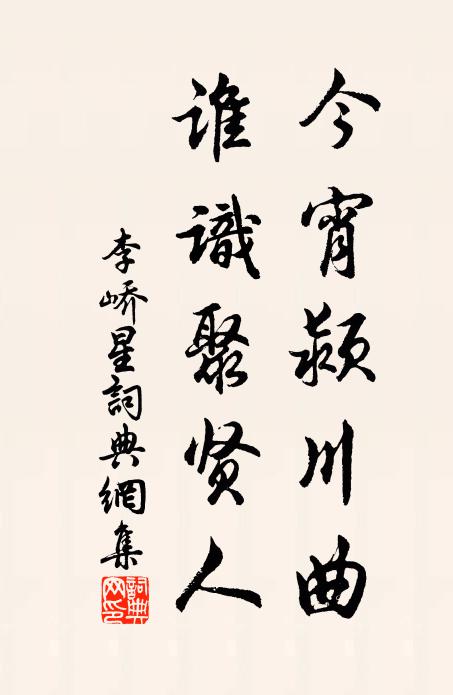 今宵颍川曲
谁識聚贤人
李嶠星詞典網集
詞典网印